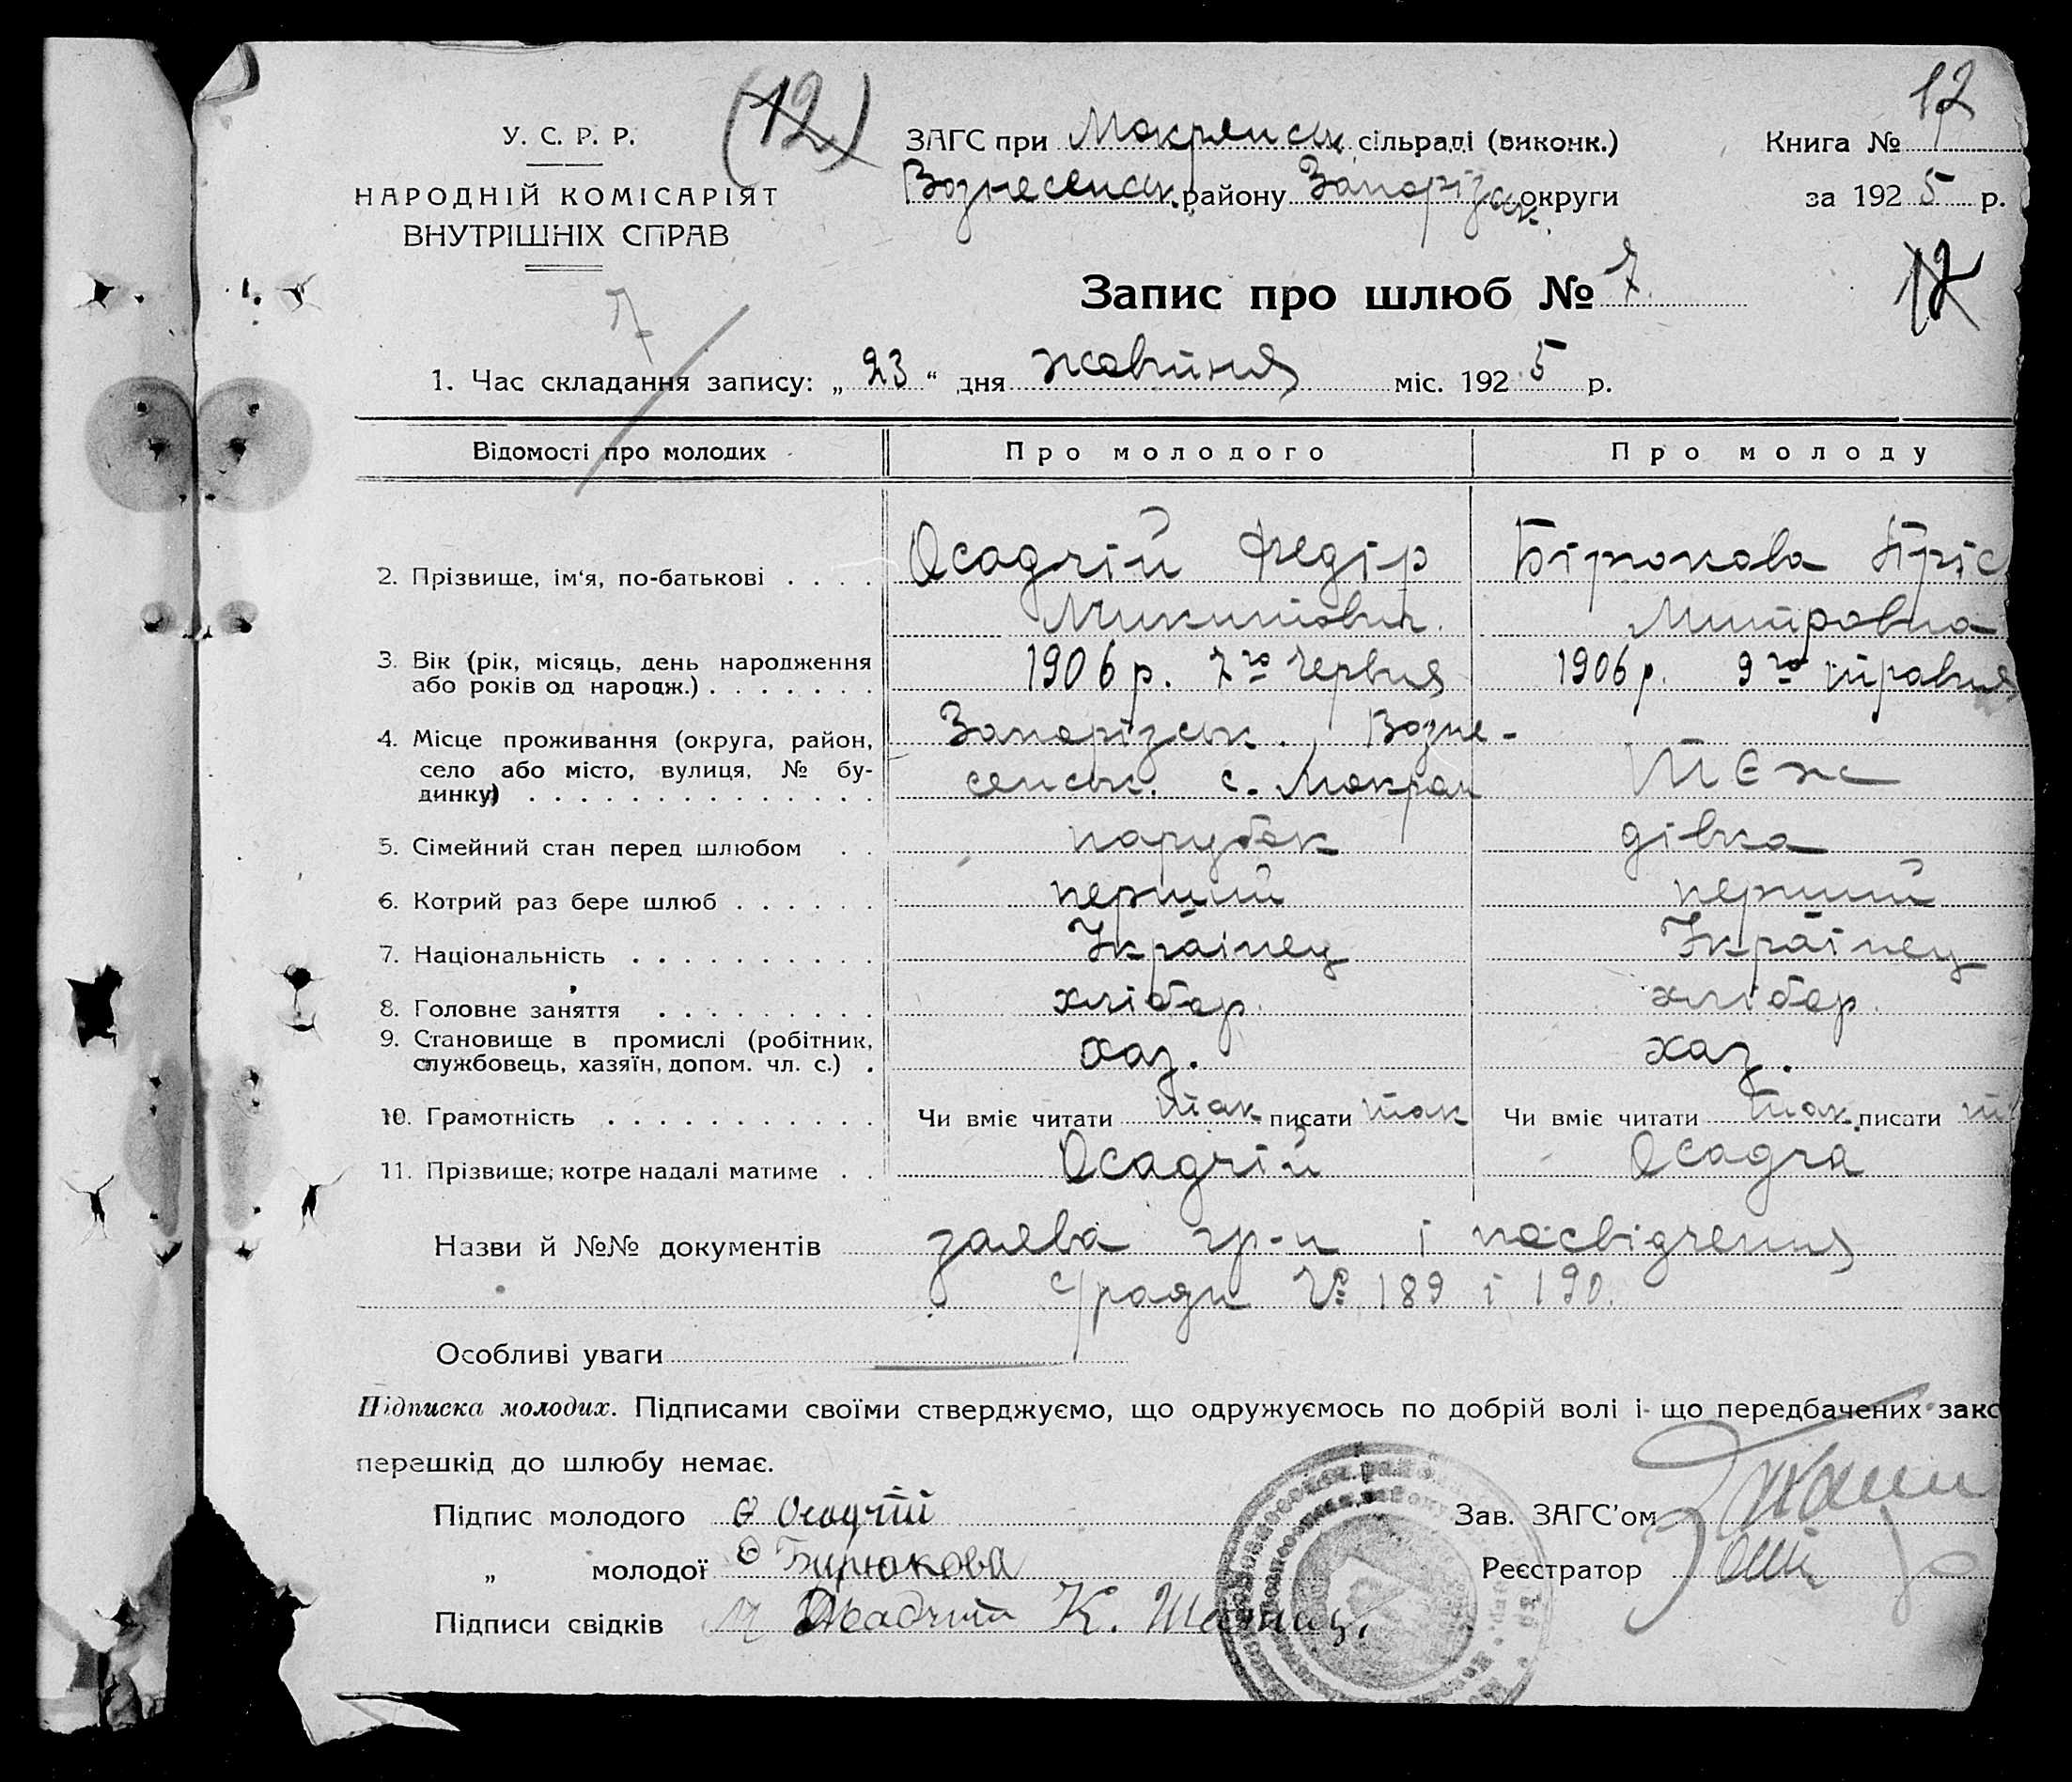 (12)
У. С. Р. Р.
НАРОДНІЙ КОМІСАРІЯТ
ВНУТРІШНІХ СПРАВ
ЗАГС при Мокрянськ сільраді (виконк.)
Вознесенськ. району Запорізськ. округи
12
Книга №
за 1925 р.
7
Запис про шлюб № 7.
12
1. Час складання запису: „ 23 “ дня жовтня міс. 1925 р.
Відомості про молодих Про молодого Про молоду
2. Прізвище, ім‘я, по-батькові . . . . Осадчій Федір Бірюкова Пріс
Микитович. Митровна
3. Вік (рік, місяць, день народження 1906 р. 7го Червня 1906 р. 9го травня
або років од народж.) . . . . . . .
4. Місце проживання (округа, район, Запорізськ. Возне-
село або місто, вулиця, № бу- сенськ. с. Мокрая Тєж
динку) . . . . . . . . . . . . . .
5. Сімейний стан перед шлюбом . . парубок дівка
6. Котрий раз бере шлюб . . . . . . перший перший
7. Національність . . . . . . . . . . Українец Українец
8. Головне заняття . . . . . . . . . хлібор. хлібор.
9. Становище в промислі (робітник, хаз. хаз.
службовець, хазяїн, допом. чл. с.) .
10. Грамотність . . . . . . . . . . . Чи вміє читати так писати так Чи вміє читати так писати т
11. Прізвище, котре надалі матиме . . Осадчій Осадча
Назви й №№ документів заява гр-н і посвідчення
с/ради № 189 і 190.
Особливі уваги
Підписка молодих. Підписами своїми стверджуємо, що одружуємось по добрій волі і що передбачених зако
перешкід до шлюбу немає.
Підпис молодого Ѳ Осадчій
Зав. ЗАГС’ом
„ молодої Бирюкова
Реєстратор
Підписи свідків Осадчий К.